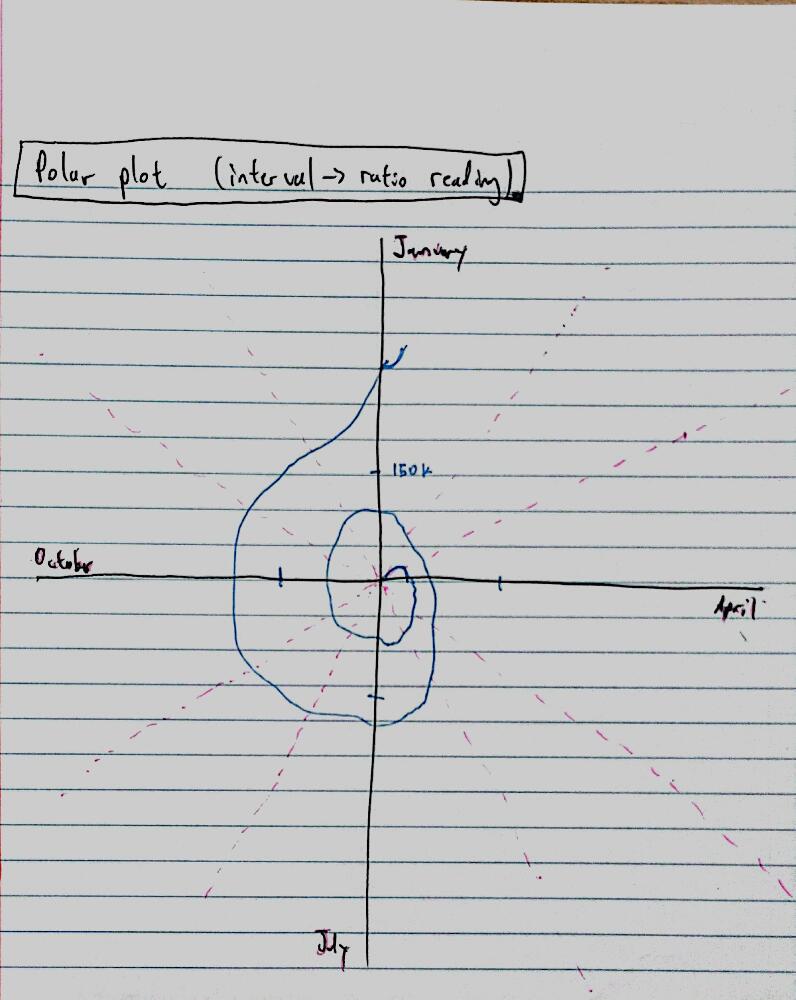 Polar plot (interval → ratio reading)
January
150k
October
April
July